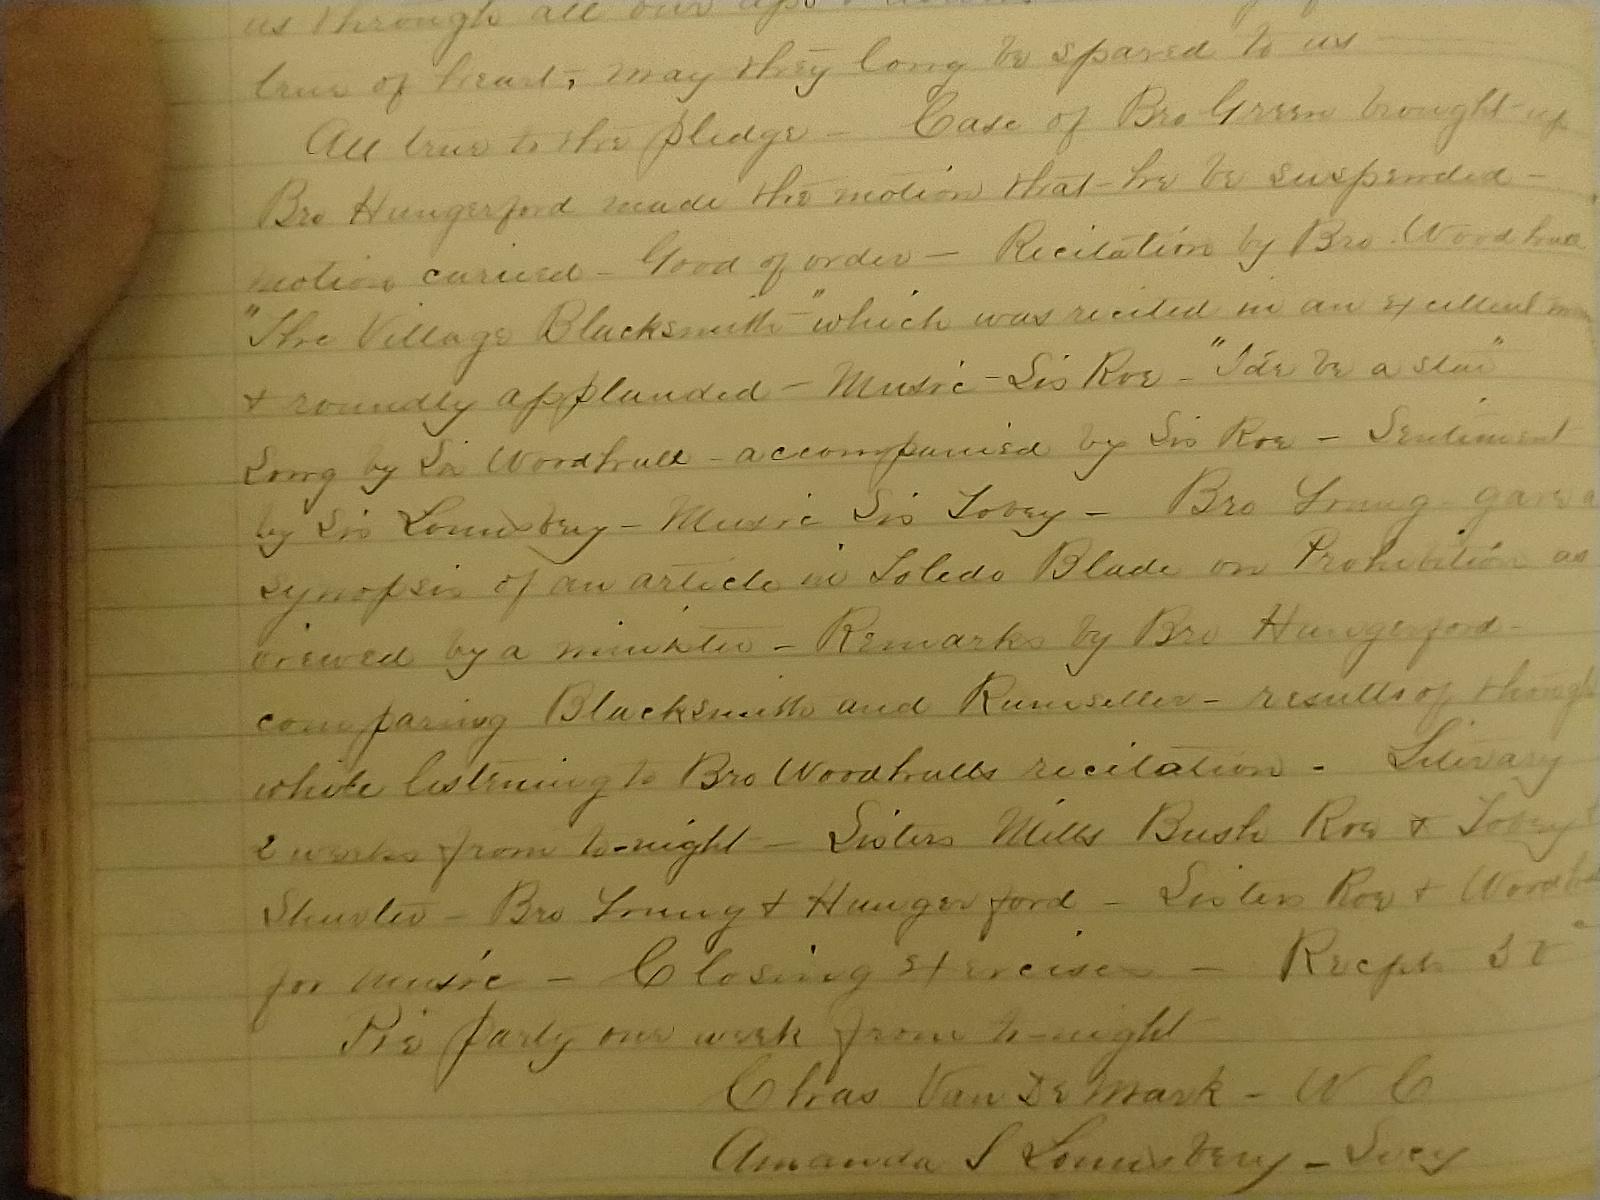 us through all our
true of heart, may they long be spared to us
All true to the pledge - Case of Bro Green brought up
Bro Hungerford made the motion that he be suspended -
motion carried - Good of order - Recitation by Bro. Woodhull
"The Village Blacksmith" which was recited in an excellent
& roundly applauded - Music - Sis Roe - "Ide be a star"
Song by Sis Woodhull - accompanied by Sis Roe - Sentiment
by Sis Lounsbery - Music Sis Tobey - Bro Young gave a
synopsis of an article in Toledo Blade on Prohibition as
viewed by a minister - Remarks by Bro Hungerford -
comparing Blacksmith and Rumseller - results of though
while listening to Bro Woodhulls recitation - Literary
2 weeks from to-night - Sisters Mills Bush Roe & Tobey
Shuster - Bro Young & Hungerford - Sisters Roe &
for music - Closing exercises - Recpts
Pie party one week from to-night
Chas Van De Mark - W C
Amanda S Lounsbery - Secy